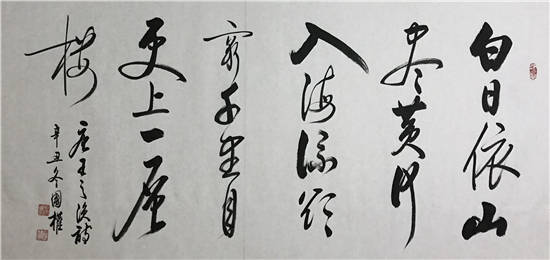 白日依山
尽黄河
入海流欲
穷千里目
更上一层
楼
唐王之涣诗
辛丑冬國權